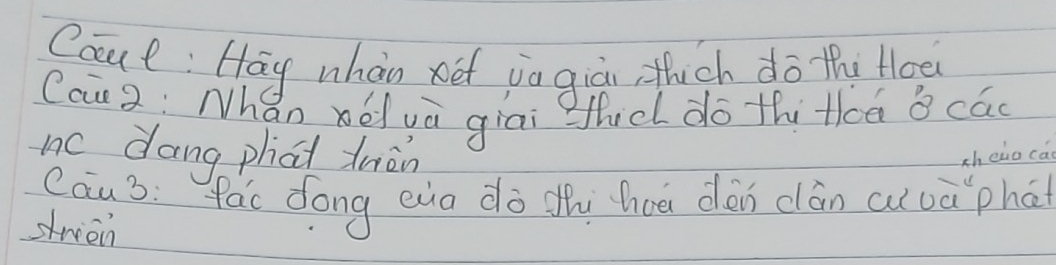 Câu 1: Hãy nhận xét và giải thích đô thị Hoá
Câu 2: Nhận xét và giải thích đô thị Hoá ở các
nc đang phát triển
Câu 3: Tác động của đô thị hoá đến dân cư và "phát
triển
xh của các